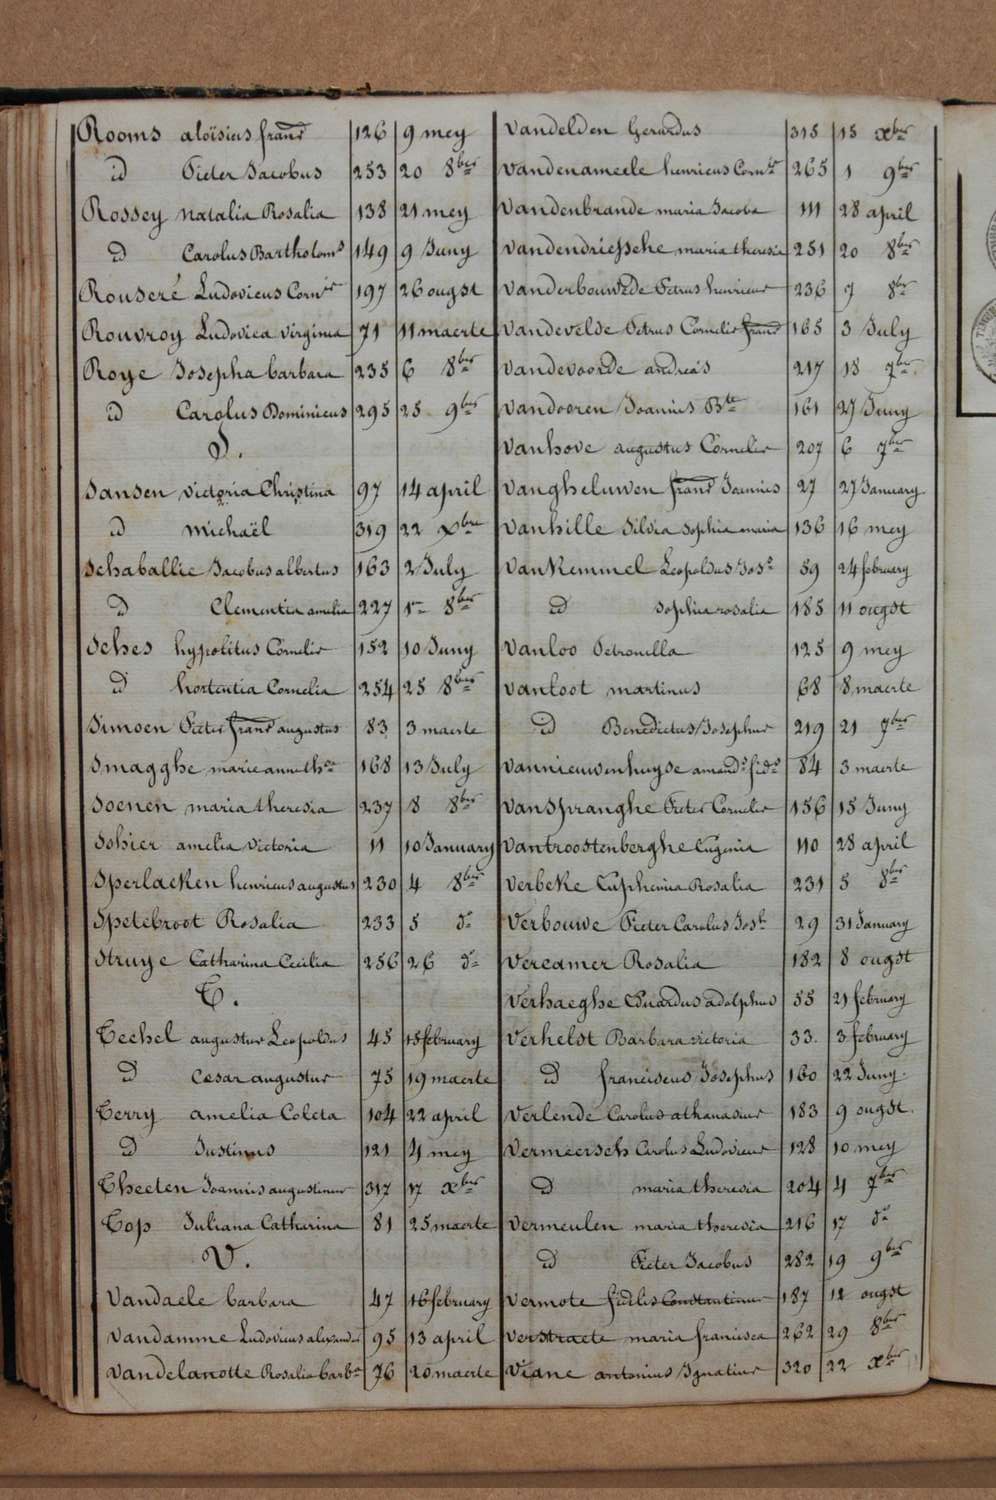 Rooms aloïsius franc 126 9 mey
id Pieter Jacobus 253 20 8ber
Rossey natalia Rosalia 138 21 mey
id Carolus Bartholoms 149 9 Juny
Rouseré Ludovicus Cornis 197 26 ougst
Rouvroy Ludovica virginia 71 11 maerte
Roye Josepha barbara 235 6 8ber
id Carolus Dominicus 295 25 9ber
S.
Sansen victoria Christina 97 14 april
id michaël 319 22 Xbre
Schaballie Jacobus albertus 163 2 July
id Clementia amelia 227 1er 8ber
Sches hypolitus Cornelis 152 10 Juny
id hortentia Cornelia 254 25 8ber
Simoen Pieter franc augustus 83 3 maerte
Smagghe marie anne 168 13 July
Soenen maria theresia 237 8 8ber
Sohier amelia victoria 11 10 January
Sperlaeken henricus augustus 230 4 8ber
Spetebroot Rosalia 233 5 do
Struye Catharina Cecilia 256 26 do
T.
Techel augustus Leopoldus 45 15 february
id Cesar augustus 75 19 maerte
Terry amelia Coleta 104 22 april
id Justinus 121 4 mey
Theeten Joannis augustinus 317 17 xber
Top Juliana Catharina 81 25 maerte
V.
Vandaele barbara 47 16 february
Vandamme Ludovicus alexander 95 13 april
Vandelanotte Rosalia barba 76 20 maerte
Vandelden Gerardus 315 18 xber
Vandenameele henricus Cornis 265 1 9ber
Vandenbrande maria Jacoba 111 28 april
Vandendriessche maria theresia 251 20 8ber
Vanderbouwede Petrus henricus 236 7 8ber
Vandevelde Petrus Cornelis franc 165 3 July
Vandevoorde andreas 217 18 7ber
Vandooren Joannis Bte 161 27 Juny
Vanhove augustus Cornelis 207 6 7ber
Vangheluwen franc Joannis 27 27 January
Vanhille Silvia sophia maria 136 16 mey
VanKemmel Leopoldus Josh 59 24 february
id sophia rosalia 185 11 ougst
Vanloo Petronella 125 9 mey
Vanloot martinus 68 8 maerte
id Benedictus Josephus 219 21 7ber
Vannieuwenhuyse amands fids 84 3 maerte
Vanspranghe Pieter Cornelis 156 15 Juny
Vantroostenberghe Eugenia 110 28 april
Verbeke Euphemia Rosalia 231 5 8ber
Verbouwe Pieter Carolus Josh 29 31 January
Vercamer Rosalia 182 8 ougst
Verhaeghe Eduardus adolphus 55 21 february
Verhelst Barbara victoria 33. 3 february
id franciscus Josephus 160 22 Juny.
Verlende Carolus athanasius 183 9 ougst.
Vermeersch Carolus Ludovicus 128 10 mey
id maria theresia 204 4 7ber
Vermeulen maria theresia 216 17 do
id Pieter Jacobus 282 19 9ber
Vermote fidelis Constantinus 187 12 ougst
Verstraete maria francisca 262 29 8ber
Viane antonius Ignatius 320 22 xber